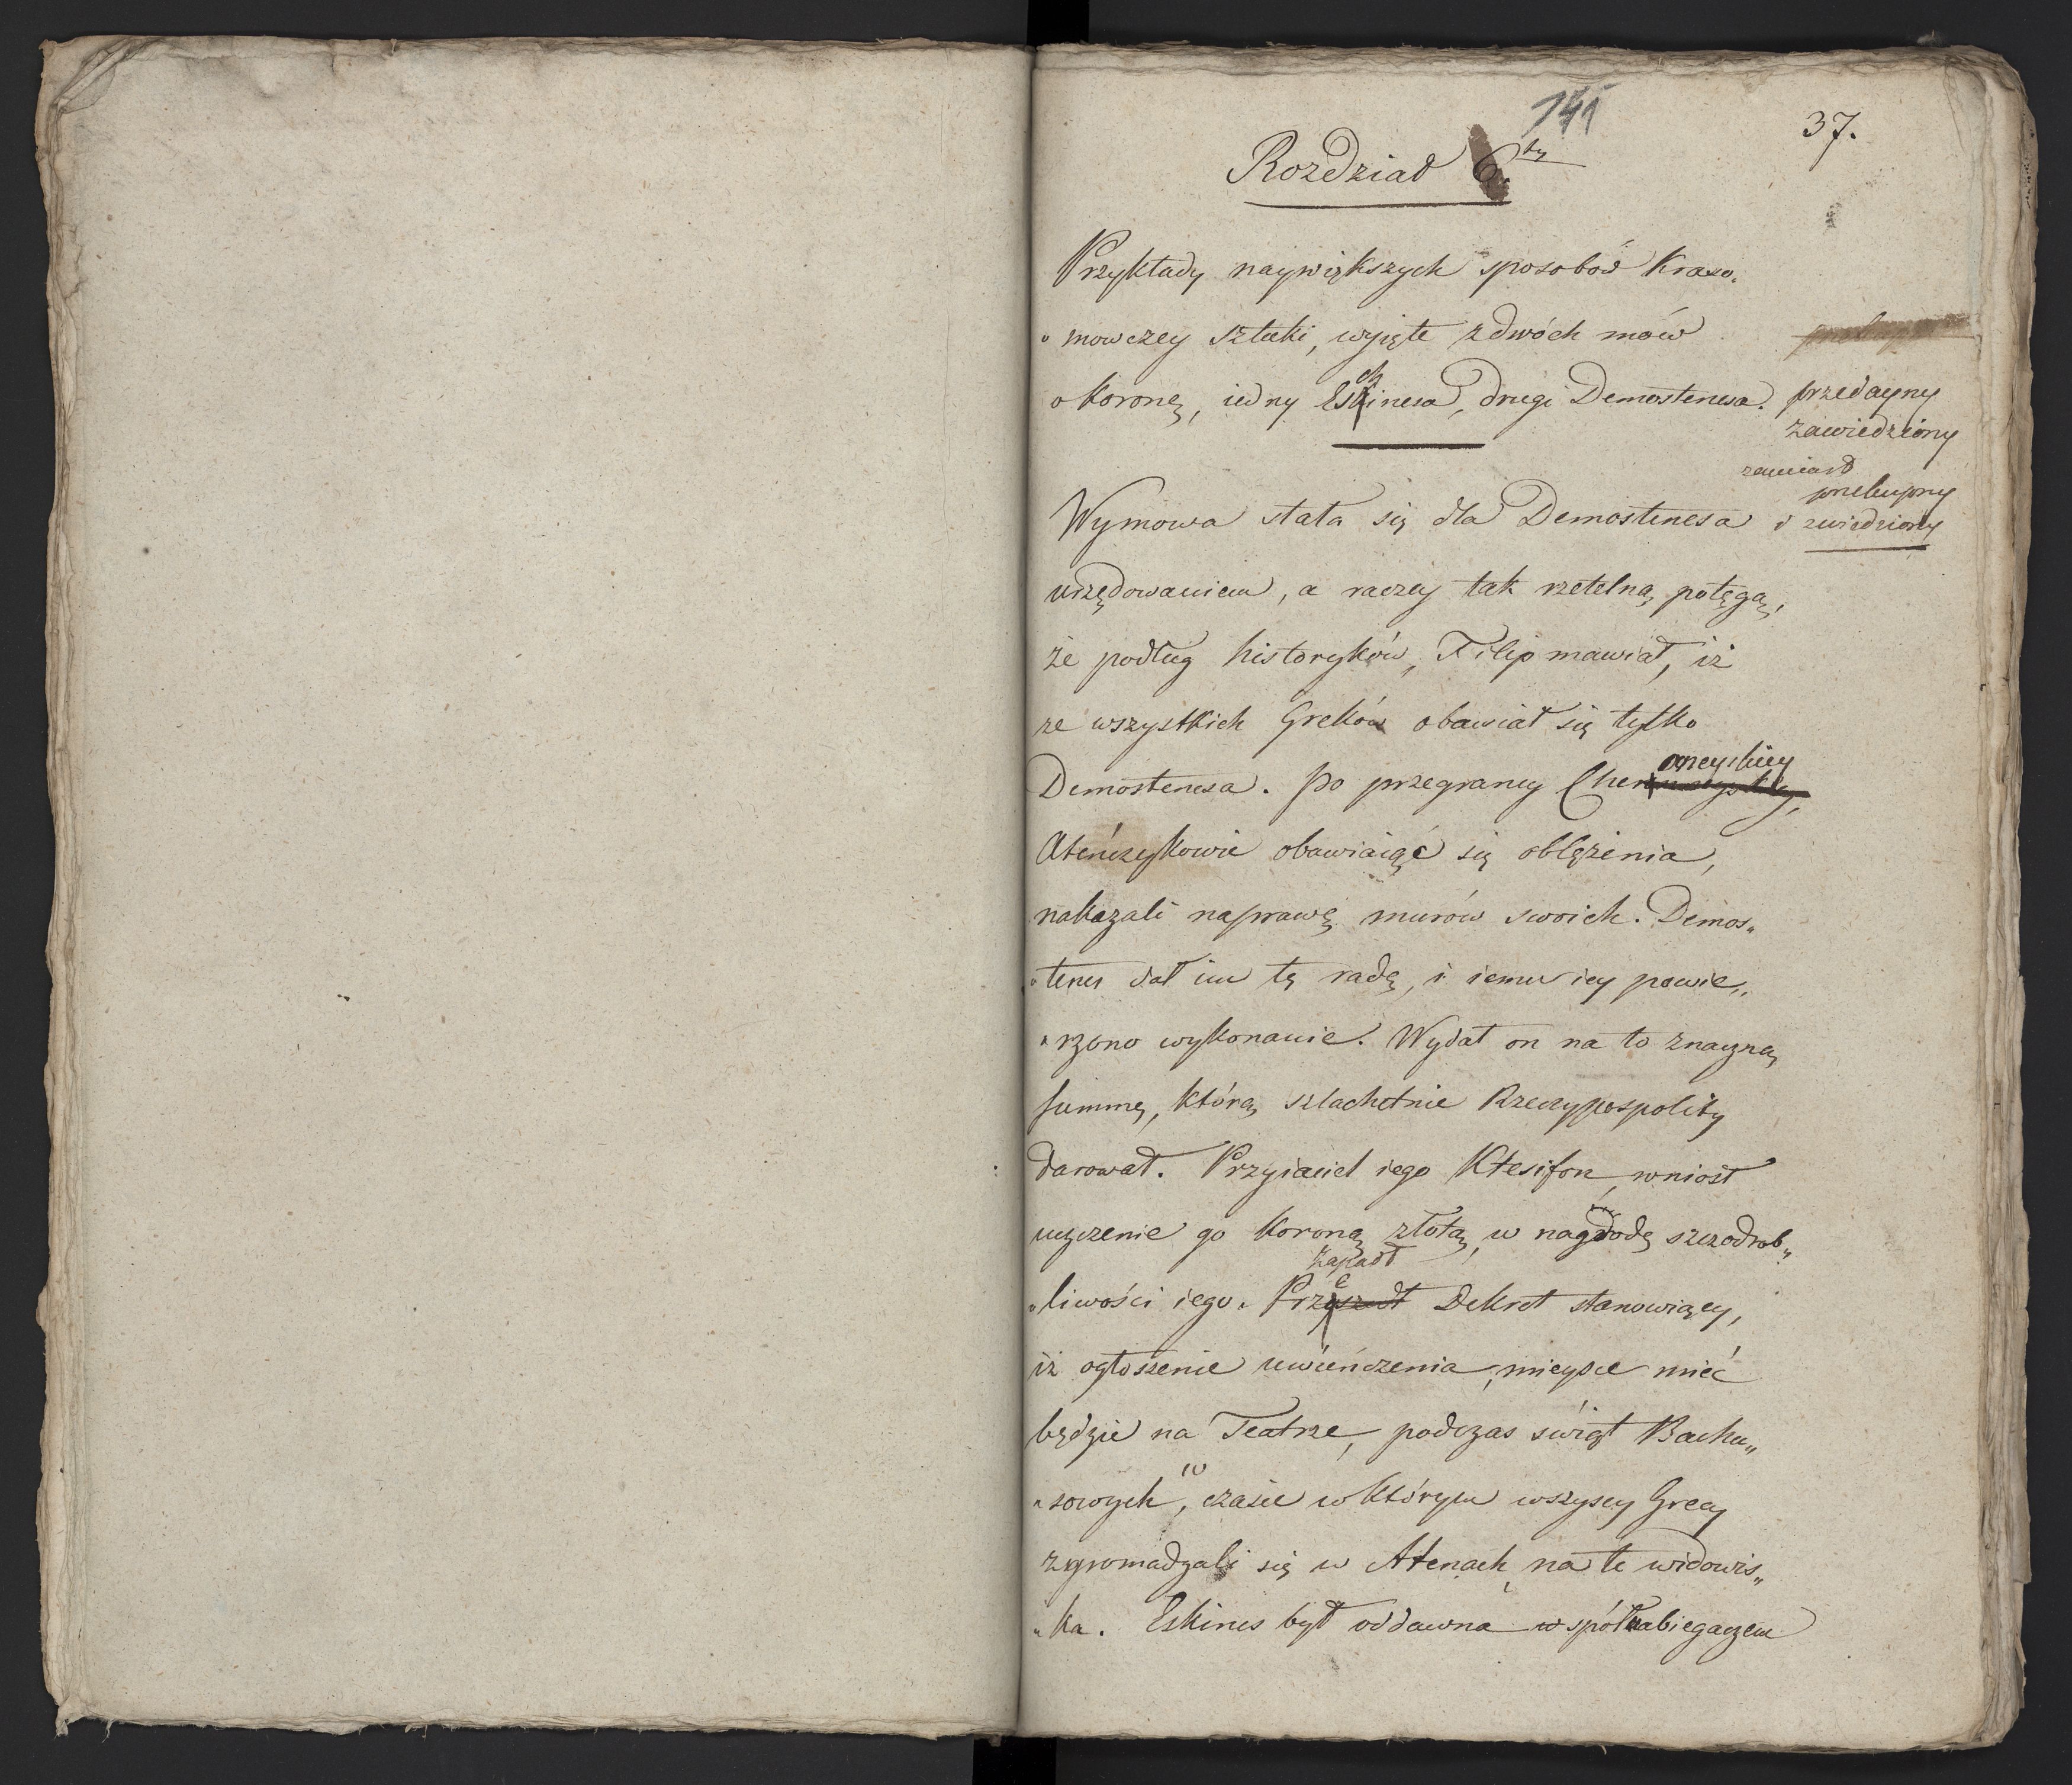 141
37.
Rozdział 6.ty
Przykłady naywiększych sposobów Kraso„
„mowczey sztuki, wyięte z dwóch mów
o Koronę, iedny Eschinesa, drugi Demostenesa.
przedayny
zawiedziony
zamiast
przekupny
i zwiedziony
Wymowa stała się dla Demostenesa
urzędowaniem, a raczey tak rzetelną potęgą,
że podług historyków, Filip mawiał, iż
ze wszystkich Greków obawiał się tylko
Demostenesa. po przegraney Cheroneyskiey
Ateńczykowie obawiaiąć się oblężenia,
nakazali naprawę murów swoich. Demos„
„tenes dał im tę radę, i iemu iey powie„
„rzono wykonanie. Wydał on na to znaczną
summę, którą szlachetnie Rzeczypospolity
darował. Przyiaciel iego Ktesifon, wniosł
uczczenie go Koroną złotą, w nagrodę szczodrob„
„liwości iego. Przeszedł zapadł Dekret stanowiący,
iż ogłoszenie uwieńczenia, mieysce mieć
będzie na Teatrze, podczas świąt Bachu„
„sowych, w czasie w którym wszyscy Grecy
zgromadzali się w Atenach, na te widowis„
„ka. Eskines był oddawna współubiegaczem